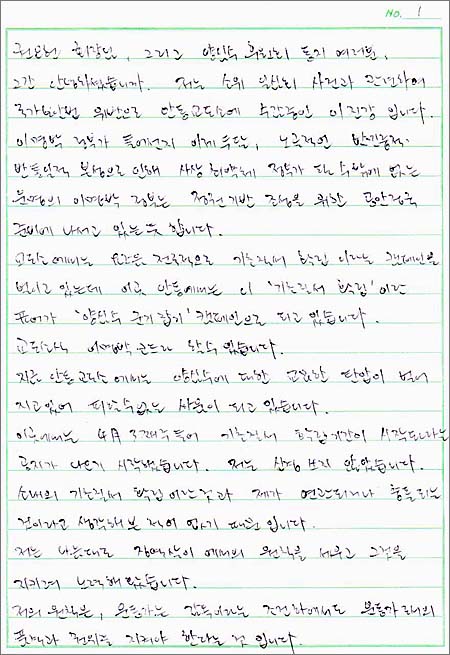 NO. 1
권오헌 회장님, 그리고 양심수 후원회 동지 여러분,
그간 안녕하셨습니까. 저는 소위 일심회 사건과 관련하여
국가보안법 위반으로 안동교도소에 수감중인 이진강 입니다.
이명박 정부가 들어선지 이제 두달, 노골적인 반민중적·
반통일적 본성으로 인해 사상 최약체 정부가 될 수밖에 없는
운명의 이명박 정부는 정권기반 조성을 위한 공안정국
준비에 나서고 있는 듯 합니다.
교도소에서는 요즘 전국적으로 기초질서 확립 이라는 캠페인을
벌이고 있는데 이곳 안동에서는 이 '기초질서 확립' 이란
용어가 '양심수 군기잡기' 캠페인으로 되고 있습니다.
교도관식 이명박 코드라 할 수 있습니다.
지금 안동 교도소에서는 양심수에 대한 교묘한 탄압이 벌어
지고 있어 피할 수 없는 싸움이 되고 있습니다.
이곳에서는 4月 3째주부터 기초질서 확립기간이 시작된다는
공지가 나오기 시작했습니다. 저는 신경 쓰지 않았습니다.
소내의 기초질서 확립이란 것과 제가 연관되거나 충돌되는
것이라고 생각해 본 적이 없기 때문입니다.
저는 나름대로 징역살이에서의 원칙을 세우고 그것을
지키려 노력해 왔습니다.
저의 원칙은, 운동가는 감옥이라는 조건하에서도 운동가로서의
품격과 권위를 지켜야 한다는 것 입니다.